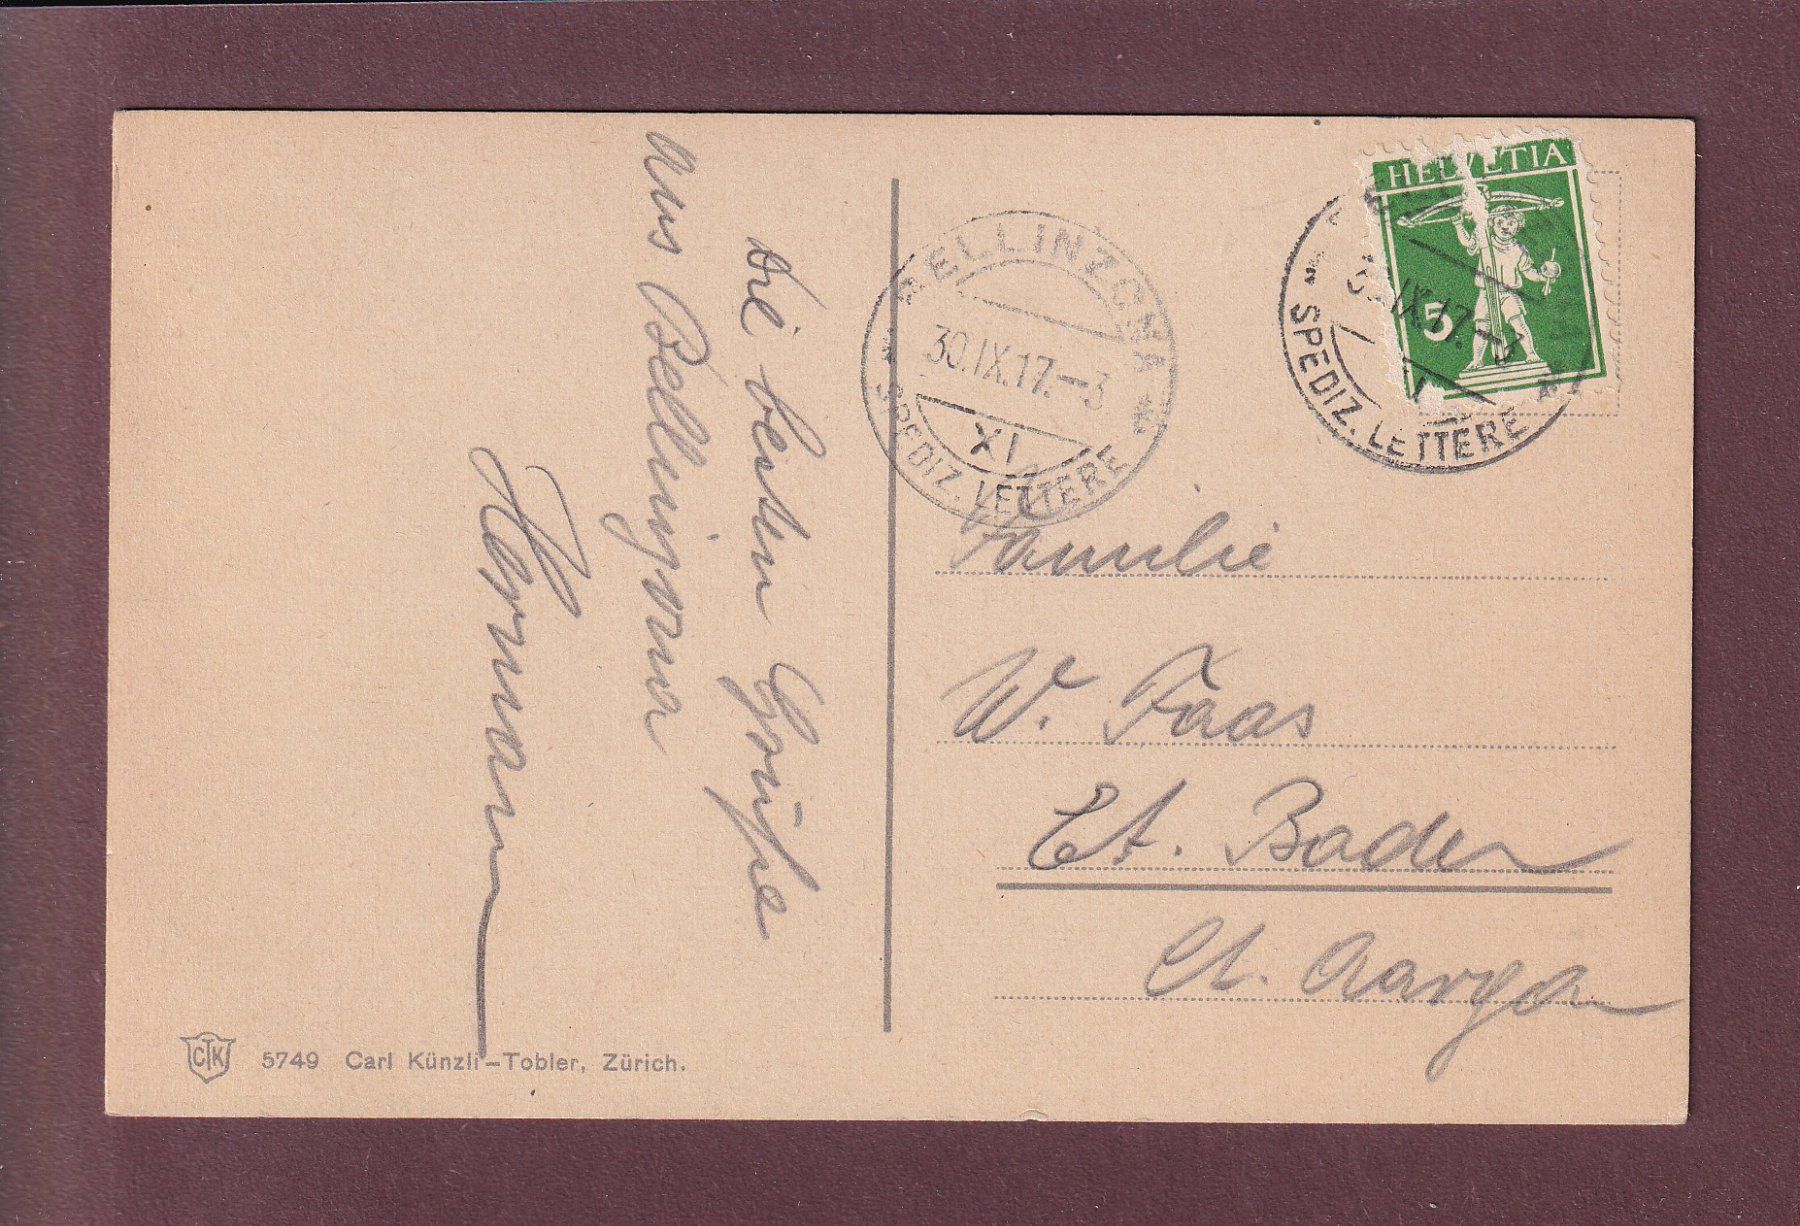 Die besten Grüsse
aus Bellinzona
Hermann
BELLINZONA
30.IX.17.–3
XI
SPEDIZ. LETTERE
HELVETIA
5
IX.17.–3
SPEDIZ. LETTERE
Familie
W. Faas
Et. Baden
Ct. Aargau
CTK 5749 Carl Künzli–Tobler, Zürich.